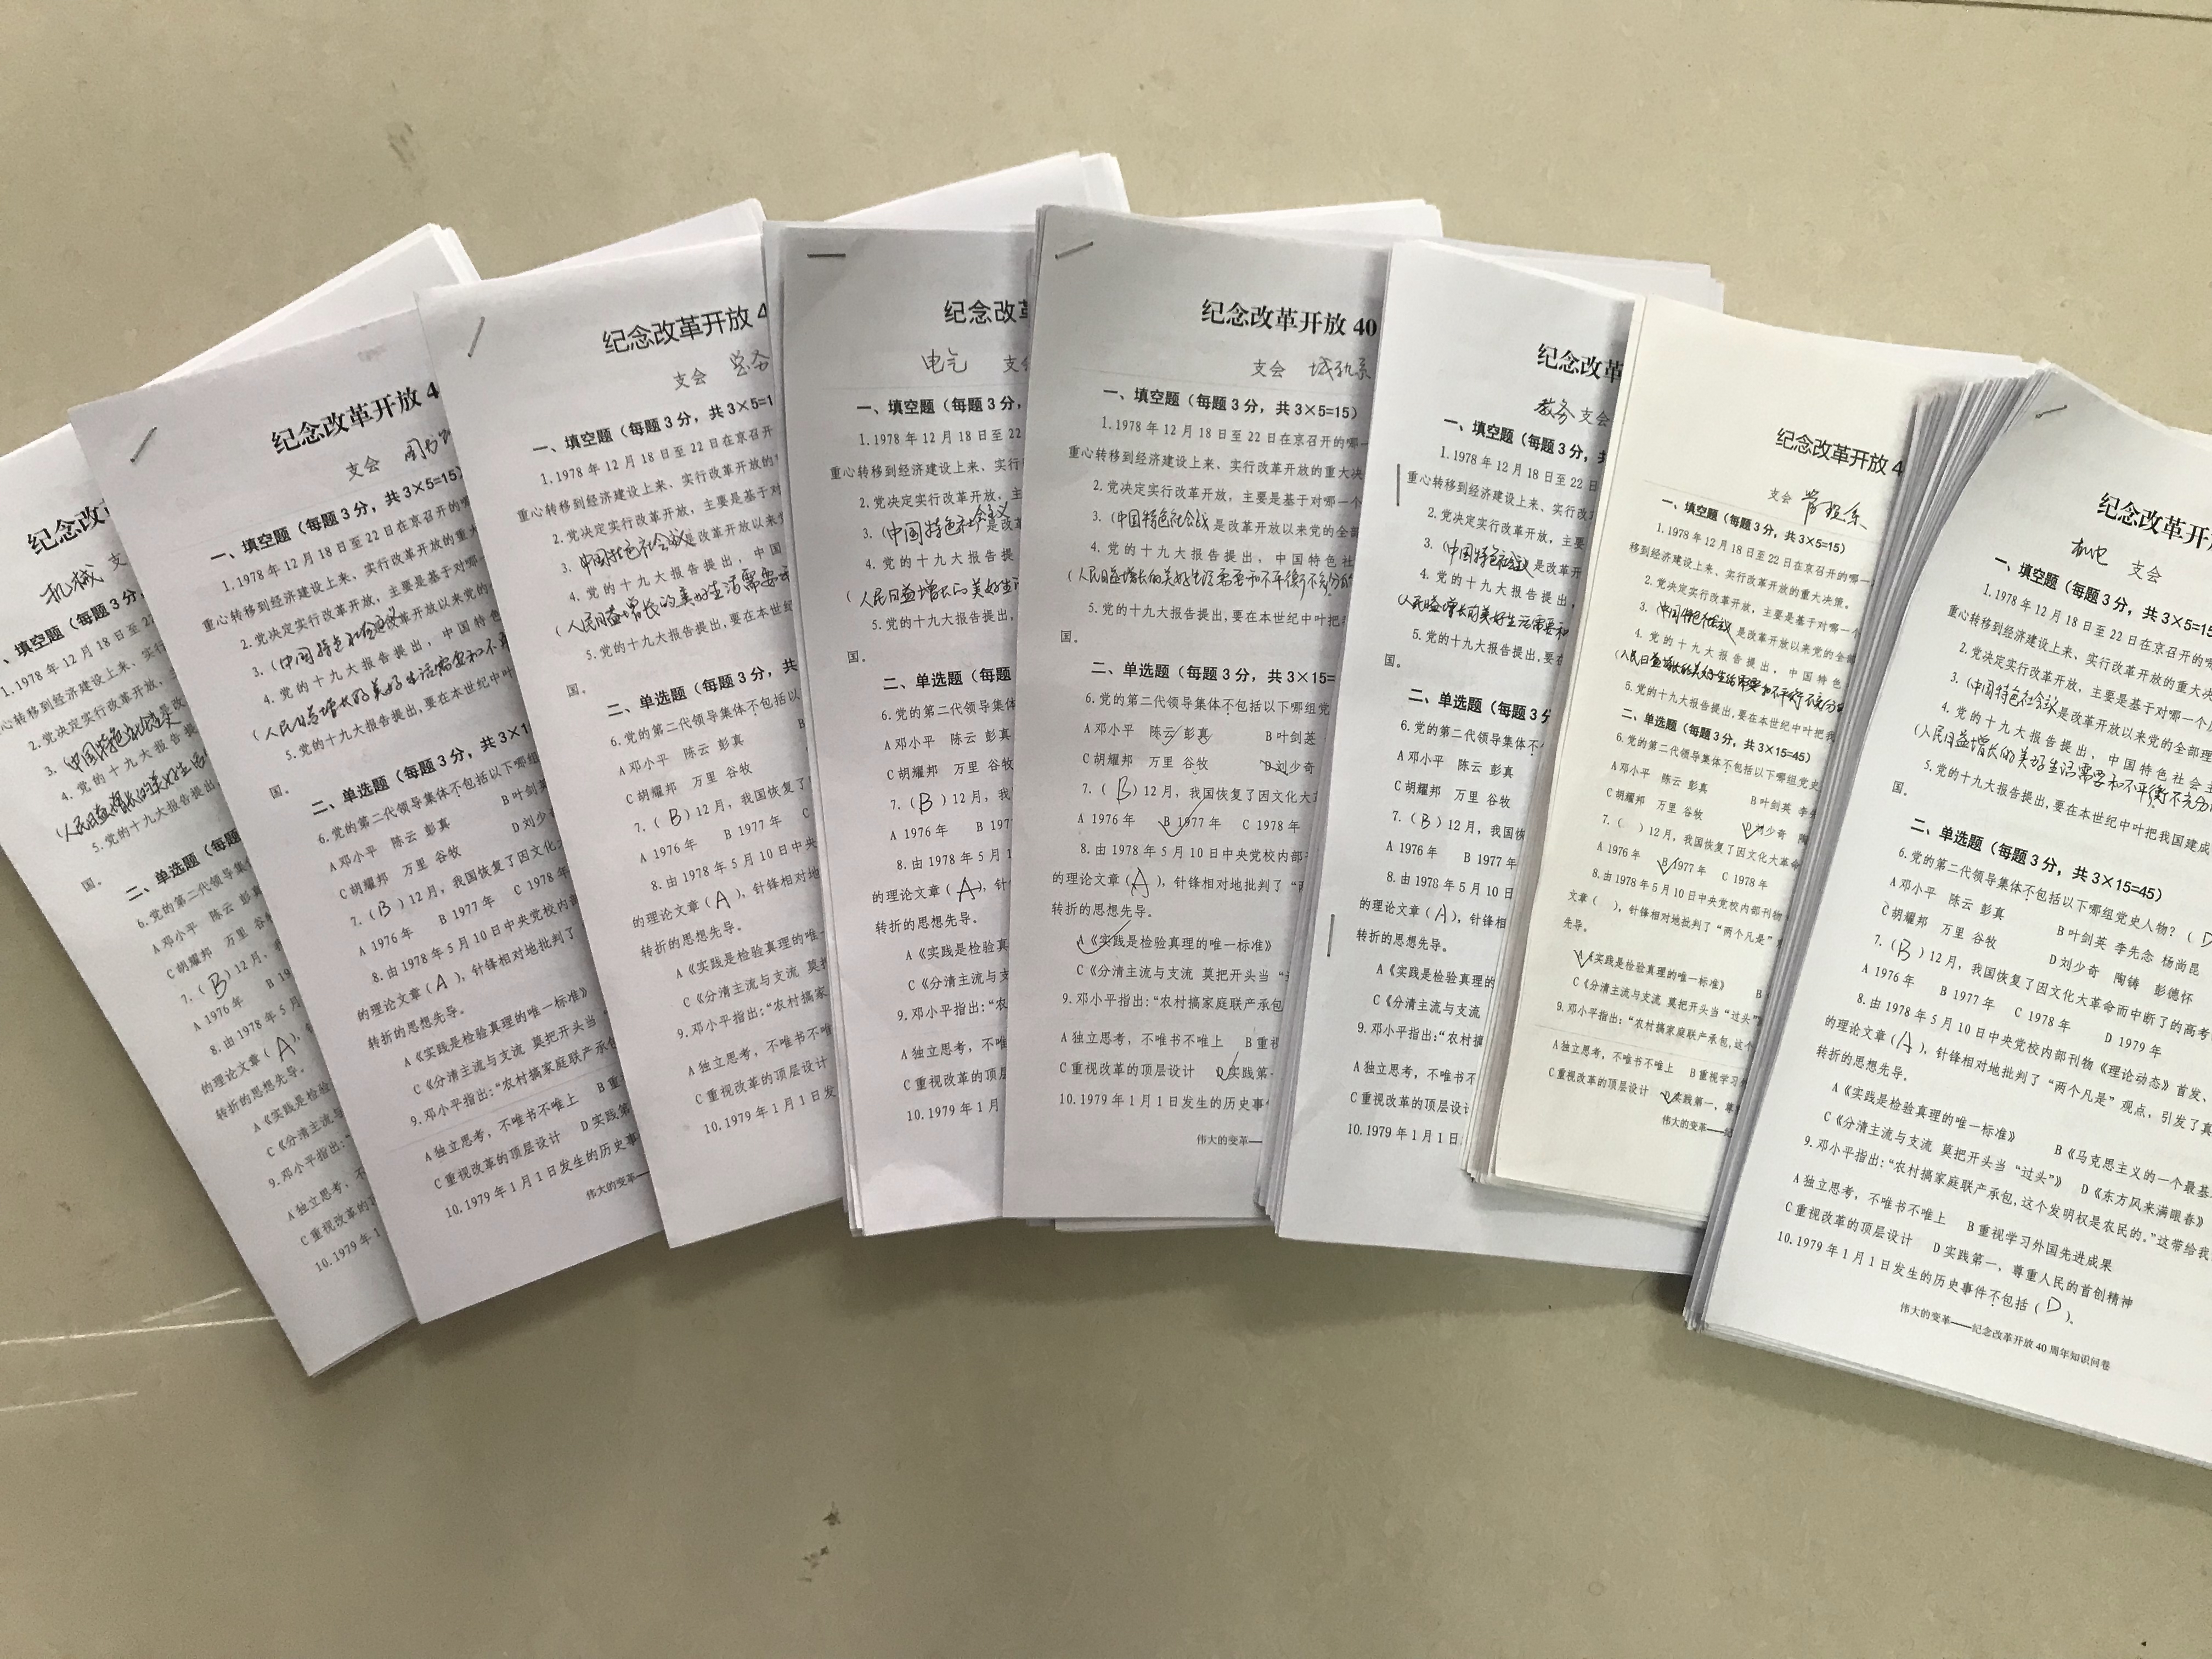 纪念改
机械 支
、填空题（每题 3 分，
1.1978 年 12 月 18 日至 22
心转移到经济建设上来、实行
2.党决定实行改革开放，
3.
4. 党的十九大报告提
(人民日益增长的美好生活
5.党的十九大报告提出
国。
二、单选题（每题
6.党的第二代领导集
A 邓小平 陈云 彭真
C 胡耀邦 万里 谷牧
7.（B）12 月，
A 1976 年 B 19
8.由 1978 年 5 月
的理论文章（A），
转折的思想先导。
A《实践是检
C《分清主流与
9.邓小平指出：
A 独立思考，不
C 重视改革的
10.1979 年 1
纪念改革开放 4
支会 图书
一、填空题（每题 3 分，共 3×5=15）
1.1978 年 12 月 18 日至 22 日在京召开的哪
重心转移到经济建设上来、实行改革开放的重大
2.党决定实行改革开放，主要是基于对哪
3.（中国特色社会主义 改革开放以来党的
4. 党的十九大报告提出， 中国特色
(人民日益增长的美好生活需要和不平
5.党的十九大报告提出,要在本世纪中叶
国。
二、单选题（每题 3 分，共 3×1
6.党的第二代领导集体不包括以下哪组
A 邓小平 陈云 彭真 B 叶剑英
C 胡耀邦 万里 谷牧 D 刘少
7.（B）12 月，我国恢复了因文化
A 1976 年 B 1977 年 C 1978 年
8.由 1978 年 5 月 10 日中央党校内部
的理论文章（A），针锋相对地批判了
转折的思想先导。
A《实践是检验真理的唯一标准》
C《分清主流与支流 莫把开头当“
9.邓小平指出：“农村搞家庭联产承包
A 独立思考，不唯书不唯上 B 重
C 重视改革的顶层设计 D 实践第
10.1979 年 1 月 1 日发生的历史事
伟大的变革—
纪念改革开放 4
支会 总务
一、填空题（每题 3 分，共 3×5=1
1.1978 年 12 月 18 日至 22 日在京召开
重心转移到经济建设上来、实行改革开放的
2.党决定实行改革开放，主要是基于对
3. 中国特色社会主义是改革开放以来
4. 党的十九大报告提出， 中国
(人民日益增长的美好生活需要和
5.党的十九大报告提出,要在本世纪
国。
二、单选题（每题 3 分，共
6.党的第二代领导集体不包括以
A 邓小平 陈云 彭真 B
C 胡耀邦 万里 谷牧
7.（B）12 月，我国恢复了
A 1976 年 B 1977 年 C
8.由 1978 年 5 月 10 日中央
的理论文章（A），针锋相对地
转折的思想先导。
A《实践是检验真理的唯一
C《分清主流与支流 莫把
9.邓小平指出：“农村搞家
A 独立思考，不唯书不唯
C 重视改革的顶层设计
10.1979 年 1 月 1 日发
纪念改革
电气 支
一、填空题（每题 3 分，
1.1978 年 12 月 18 日至 22
重心转移到经济建设上来、实行
2.党决定实行改革开放，主
3.（中国特色社会主义是改革
4. 党的十九大报告提
(人民日益增长的美好生活
5.党的十九大报告提出,
国。
二、单选题（每题
6.党的第二代领导集体
A 邓小平 陈云 彭真
C 胡耀邦 万里 谷牧
7.（B）12 月，我
A 1976 年 B 197
8.由 1978 年 5 月 1
的理论文章（A），针
转折的思想先导。
A《实践是检验真
C《分清主流与支
9.邓小平指出：“农
A 独立思考，不唯
C 重视改革的顶层
10.1979 年 1 月
纪念改革开放 40
支会 城轨系
一、填空题（每题 3 分，共 3×5=15）
1.1978 年 12 月 18 日至 22 日在京召开的哪一
重心转移到经济建设上来、实行改革开放的重大决
2.党决定实行改革开放，主要是基于对哪一个
3.（中国特色社会主义 是改革开放以来党的全部
4. 党的十九大报告提出， 中国特色社
(人民日益增长的美好生活需要和不平衡不充分的
5.党的十九大报告提出,要在本世纪中叶把
国。
二、单选题（每题 3 分，共 3×15=
6.党的第二代领导集体不包括以下哪组党
A 邓小平 陈云 彭真 B 叶剑英
C 胡耀邦 万里 谷牧 D 刘少奇
7.（B）12 月，我国恢复了因文化大
A 1976 年 B 1977 年 C 1978 年
8.由 1978 年 5 月 10 日中央党校内部
的理论文章（A），针锋相对地批判了“
转折的思想先导。
A《实践是检验真理的唯一标准》
C《分清主流与支流 莫把开头当“
9.邓小平指出：“农村搞家庭联产承包
A 独立思考，不唯书不唯上 B 重视
C 重视改革的顶层设计 D 实践第一
10.1979 年 1 月 1 日发生的历史事件
伟大的变革—
纪念改革
教务 支会
一、填空题（每题 3 分，共
1.1978 年 12 月 18 日至 22 日
重心转移到经济建设上来、实行改
2.党决定实行改革开放，主要
3.（中国特色社会主义 是改革开
4. 党的十九大报告提出，
(人民日益增长的美好生活需要和
5.党的十九大报告提出,要在
国。
二、单选题（每题 3 分
6.党的第二代领导集体不
A 邓小平 陈云 彭真
C 胡耀邦 万里 谷牧
7.（B）12 月，我国恢
A 1976 年 B 1977 年
8.由 1978 年 5 月 10 日
的理论文章（A），针锋相
转折的思想先导。
A《实践是检验真理的
C《分清主流与支流
9.邓小平指出：“农村搞
A 独立思考，不唯书不
C 重视改革的顶层设计
10.1979 年 1 月 1 日
纪念改革开放 4
支会
一、填空题（每题 3 分，共 3×5=15）
1.1978 年 12 月 18 日至 22 日在京召开的哪一
移到经济建设上来、实行改革开放的重大决策。
2.党决定实行改革开放，主要是基于对哪一个
3.（中国特色社会主义 是改革开放以来党的全部
4. 党的十九大报告提出， 中国特色
(人民日益增长的美好生活需要和不平衡不充分
5.党的十九大报告提出,要在本世纪中叶把我
二、单选题（每题 3 分，共 3×15=45）
6.党的第二代领导集体不包括以下哪组党史
A 邓小平 陈云 彭真 B 叶剑英 李先
C 胡耀邦 万里 谷牧 D 刘少奇 陶
7.（ ）12 月，我国恢复了因文化大革命
A 1976 年 B 1977 年 C 1978 年
8.由 1978 年 5 月 10 日中央党校内部刊物
文章（ ），针锋相对地批判了“两个凡是”
先导。
A《实践是检验真理的唯一标准》 B
C《分清主流与支流 莫把开头当“过头”
9.邓小平指出：“农村搞家庭联产承包,这个
A 独立思考，不唯书不唯上 B 重视学习
C 重视改革的顶层设计 D 实践第一，尊
伟大的变革——纪
纪念改革开
机电 支会
一、填空题（每题 3 分，共 3×5=15
1.1978 年 12 月 18 日至 22 日在京召开的
重心转移到经济建设上来、实行改革开放的重大决
2.党决定实行改革开放，主要是基于对哪一个
3.（中国特色社会主义是改革开放以来党的全部理
4. 党的十九大报告提出， 中国特色社会主
(人民日益增长的美好生活需要和不平衡不充分
5.党的十九大报告提出,要在本世纪中叶把我国建成
国。
二、单选题（每题 3 分，共 3×15=45）
6.党的第二代领导集体不包括以下哪组党史人物？（D
A 邓小平 陈云 彭真 B 叶剑英 李先念 杨尚昆
C 胡耀邦 万里 谷牧 D 刘少奇 陶铸 彭德怀
7.（B）12 月，我国恢复了因文化大革命而中断了的高考
A 1976 年 B 1977 年 C 1978 年 D 1979 年
8.由 1978 年 5 月 10 日中央党校内部刊物《理论动态》首发、
的理论文章（A），针锋相对地批判了“两个凡是”观点，引发了真
转折的思想先导。
A《实践是检验真理的唯一标准》 B《马克思主义的一个最基
C《分清主流与支流 莫把开头当“过头”》 D《东方风来满眼春》
9.邓小平指出：“农村搞家庭联产承包,这个发明权是农民的。”这带给我
A 独立思考，不唯书不唯上 B 重视学习外国先进成果
C 重视改革的顶层设计 D 实践第一，尊重人民的首创精神
10.1979 年 1 月 1 日发生的历史事件不包括（D）。
伟大的变革——纪念改革开放 40 周年知识问卷